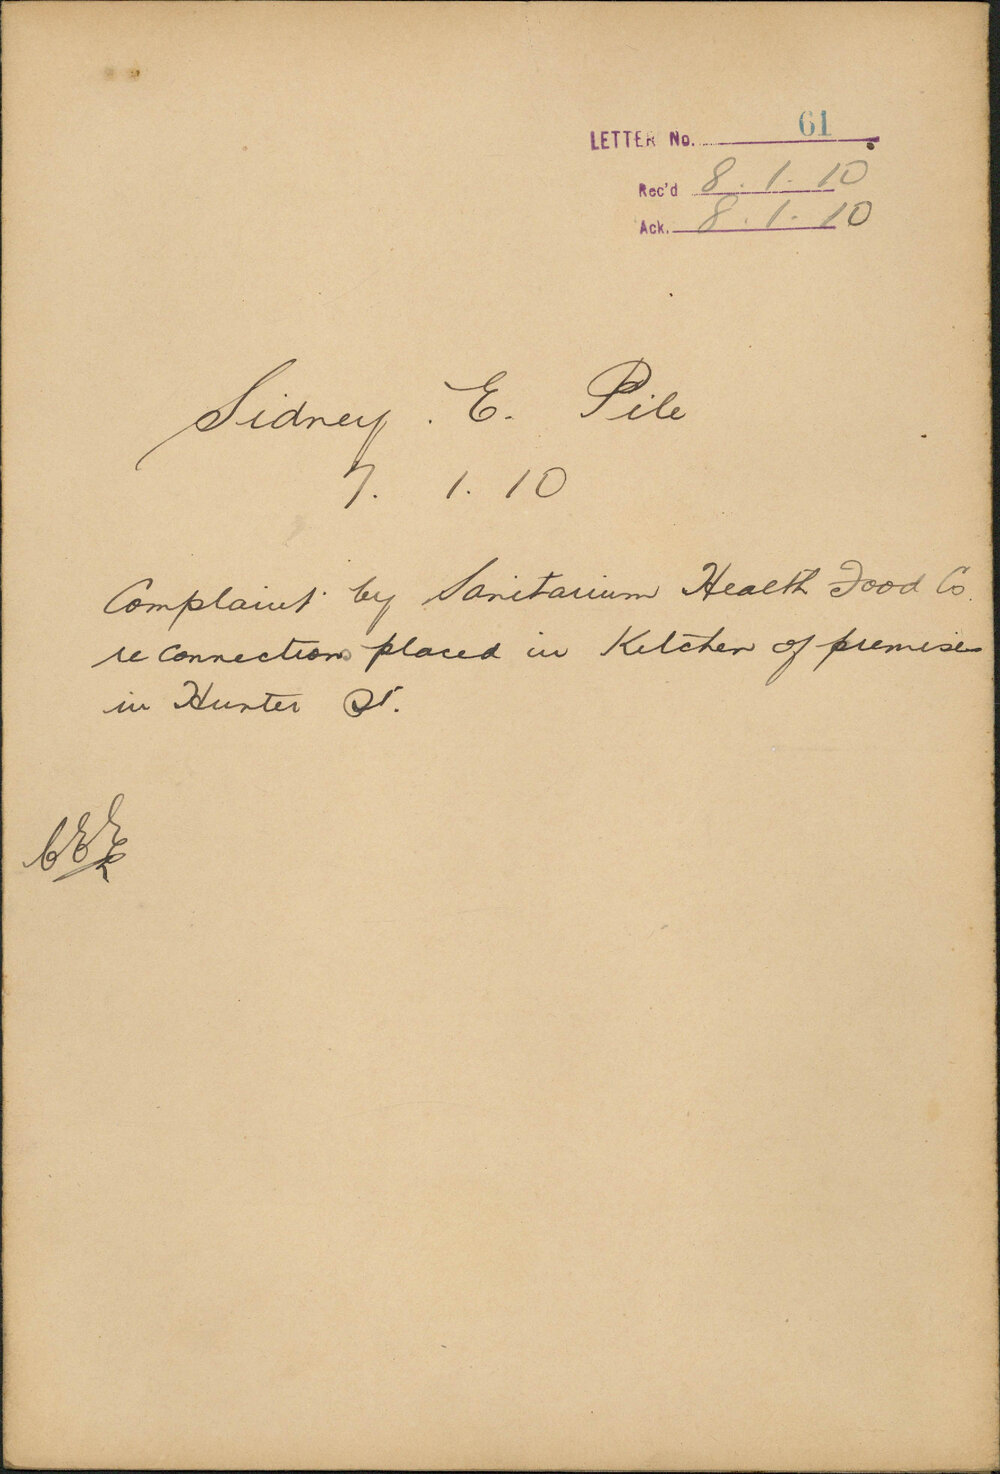 LETTER No. 61
Rec'd 8.1.10
Ack. 8.1.10
Sidney. E. Pile
7. 1. 10
Complaint by Sanitarium Health Food Co.
re connections placed in Kitchen of premises
in Hunter St.